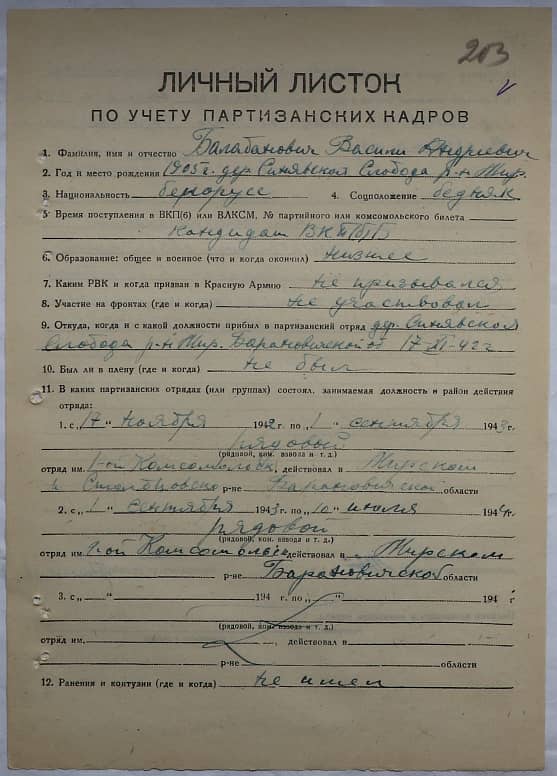 203
ЛИЧНЫЙ ЛИСТОК
ПО УЧЕТУ ПАРТИЗАНСКИХ КАДРОВ
1. Фамилия, имя и отчество Балабанович Василий Андреевич
2. Год и место рождения 1905 г. дер. Синявская Слобода р-н Мир.
3. Национальность белорусс 4. Соцположение бедняк
5. Время поступления в ВКП(б) или ВЛКСМ, № партийного или комсомольского билета
Кандидат ВКП(б)Б
6. Образование: общее и военное (что и когда окончил) низшее
7. Каким РВК и когда призван в Красную Армию не призывался
8. Участие на фронтах (где и когда) не участвовал
9. Откуда, когда и с какой должности прибыл в партизанский отряд дер. Синявской
Слобода р-н Мир. Барановичской об 17-XI-42 г
10. Был ли в плену (где и когда) не был
11. В каких партизанских отрядах (или группах) состоял, занимаемая должность и район действия
отряда:
1. с „17“ ноября 1942 г. по „1“ сентября 1943 г.
рядовый
(рядовой, ком. взвода и т. д.)
отряд им. 1-ой Комсомольск, действовал в Мирском
и Столбцовско р-не Барановичской области
2. с „1“ сентября 1943 г. по „10“ июля 1944 г.
рядовой
(рядовой, ком. взвода и т. д.)
отряд им. 1-ой Комсомольс действовал в Мирском
р-не Барановичской области
3. с „ “ 194 г. по „ “ 194 г
(рядовой, ком. взвода и т. д.)
отряд им. , действовал в
р-не области
12. Ранения и контузии (где и когда) не имел